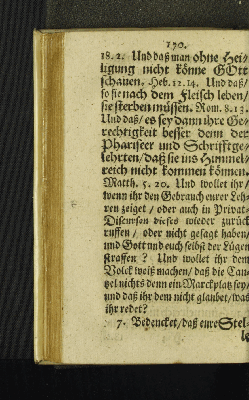 170.
18. 2. Und daß man ohne Hei-
ligung nicht könne GOtt
schauen. Heb. 12. 14. Und daß/
so sie nach dem Fleisch leben/
sie sterben müssen. Rom. 8. 13.
Und daß/ es sey dann ihre Ge-
rechtigkeit besser denn der
Phariseer und Schrifftge-
lehrten/ daß sie ins Himmel-
reich nicht kommen können.
Matth. 5. 20. Und wollet ihr/
wenn ihr den Gebrauch eurer Leh-
ren zeiget / oder auch in Privat-
Discursen dieses wieder zurück
ruffen / oder nicht gesagt haben/
und Gott und euch selbst der Lügen
straffen ? Und wollet ihr dem
Volck weiß machen/ daß die Can-
tzel nichts denn ein Marckplatz sey/
und daß ihr dem nicht glaubet/ was
ihr redet?
7. Bedencket/ daß eure Stel-
le